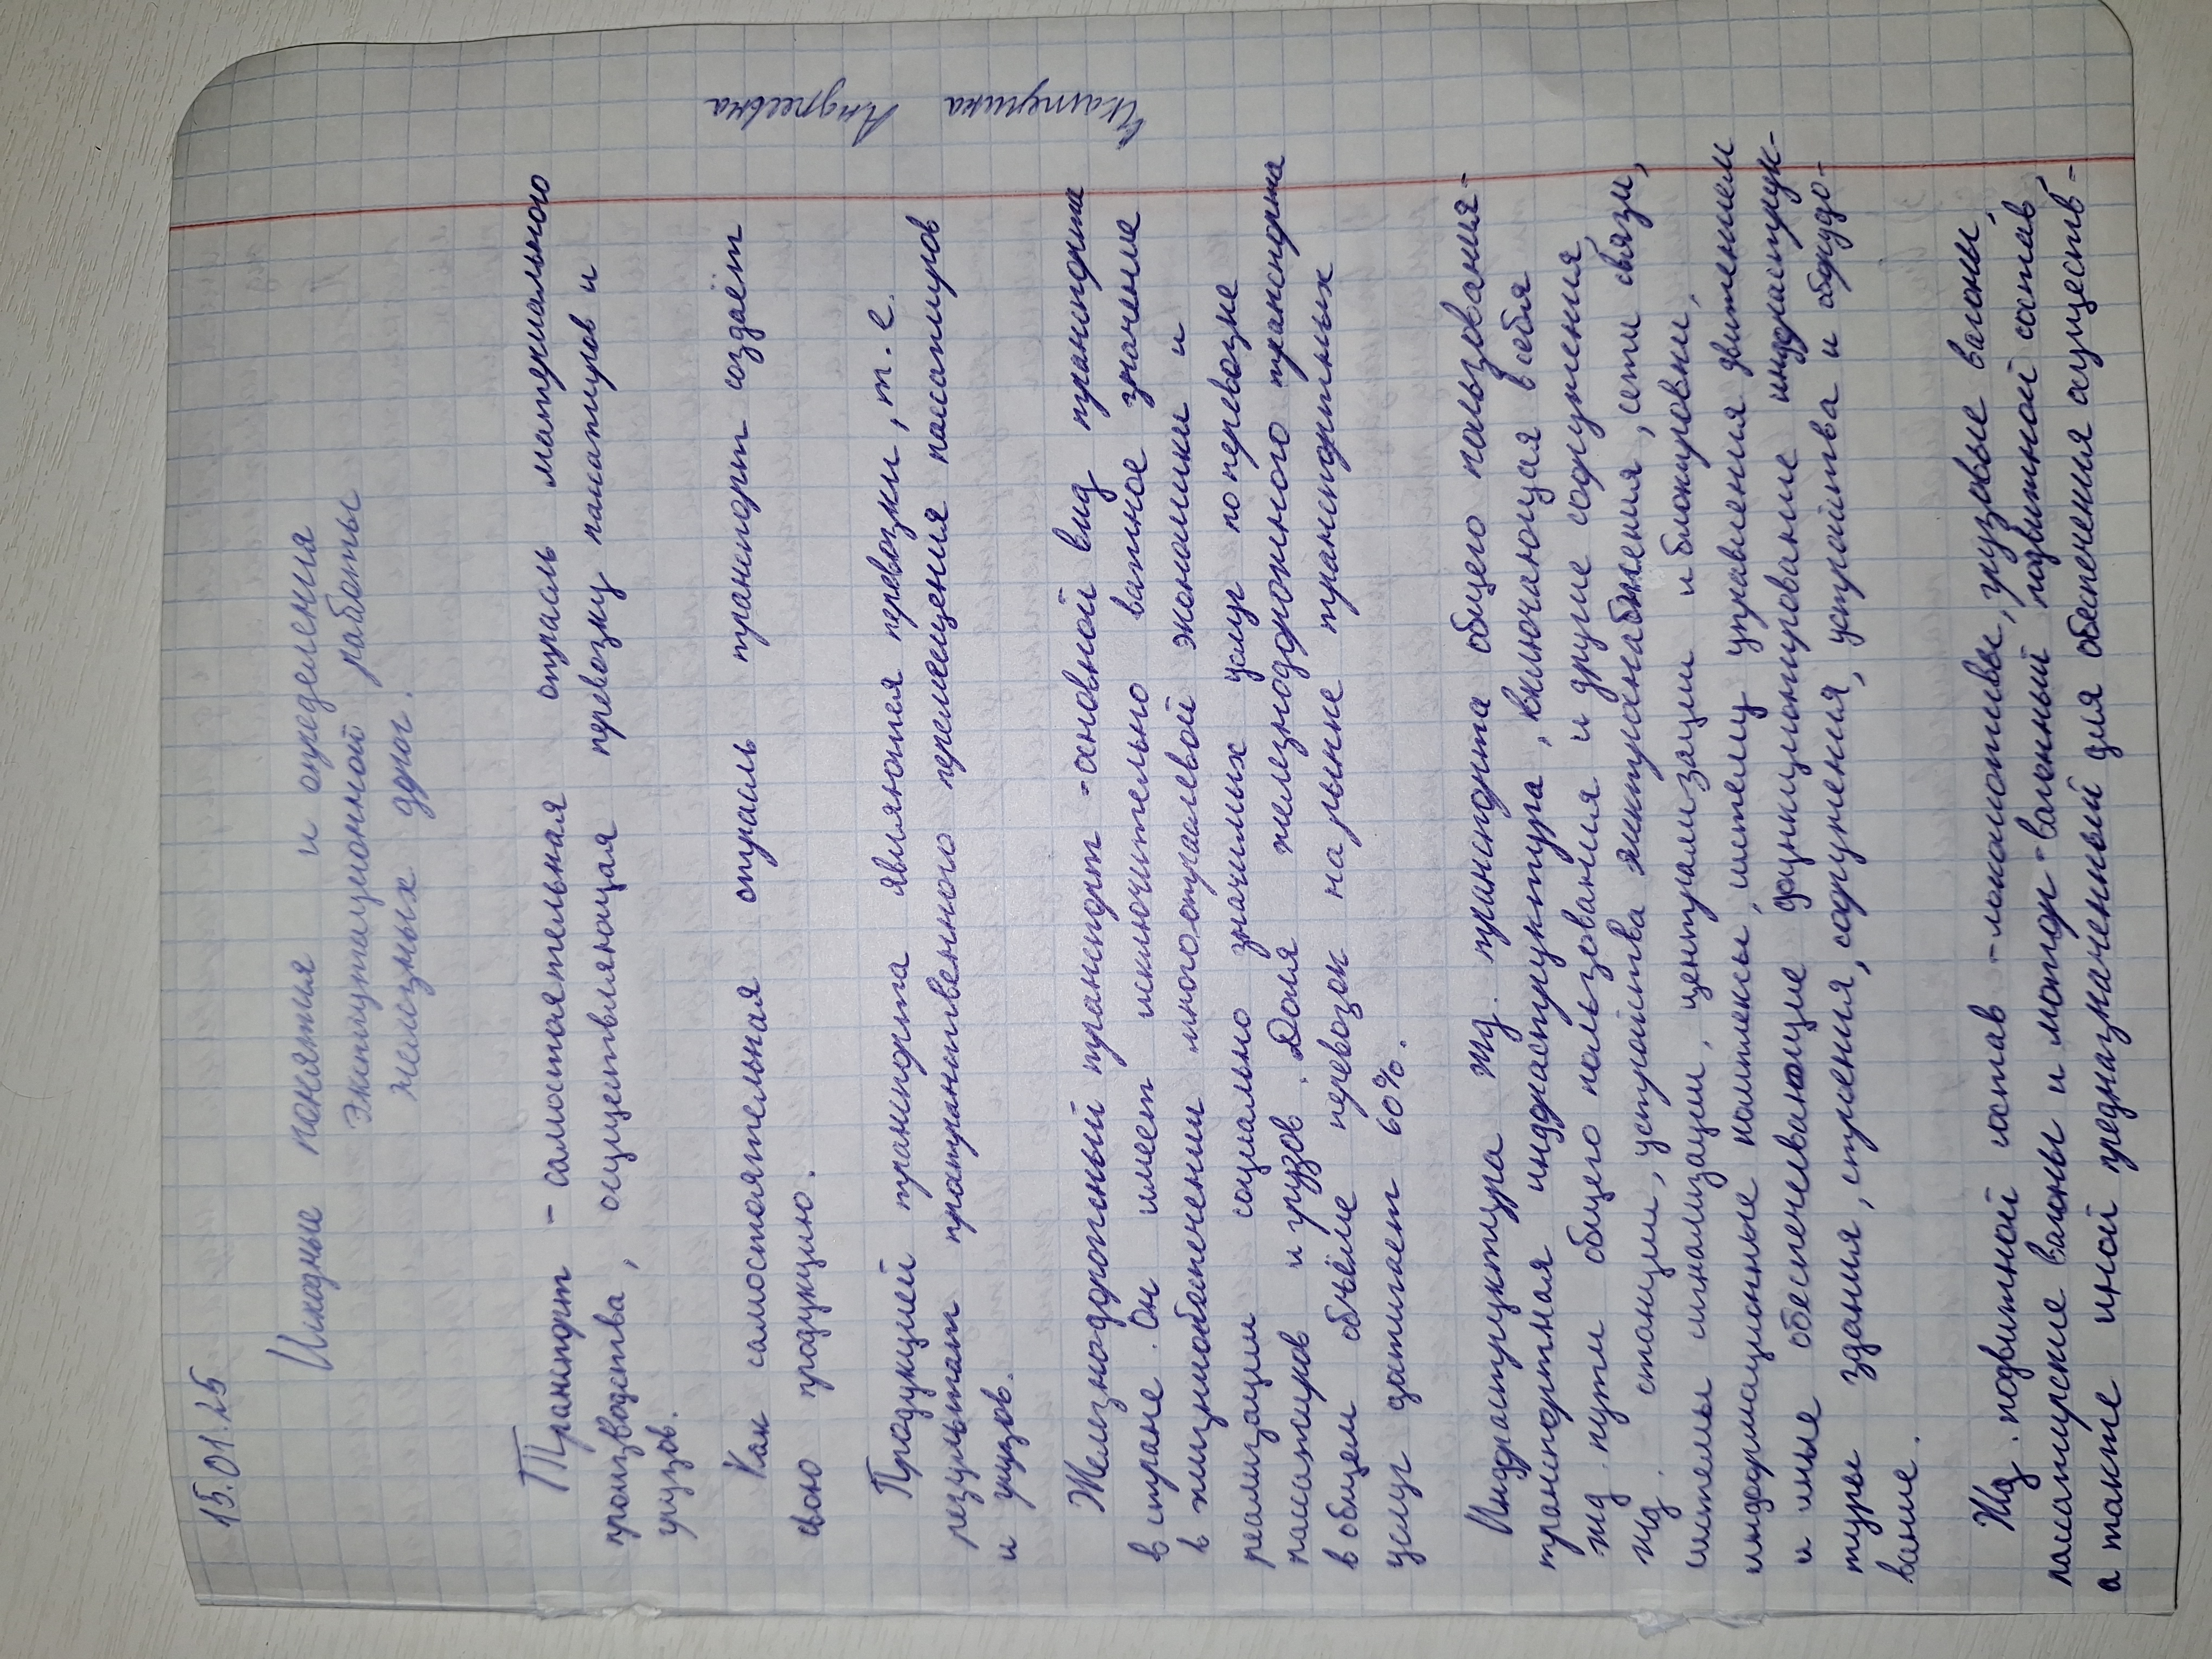 15.01.25
Исходные понятия и определения
Эксплуатационной работы
железных дрог.
Транспорт - самостоятельная отрасль материального
производства, осуществляющая перевозку пассажиров и
грузов.
Как самостоятельная отрасль транспорт создаёт
свою продукцию.
Продукцией транспорта являются перевозки, т.е.
результат пространственного перемещения пассажиров
и грузов.
Железнодорожный транспорт - основной вид транспорта
в стране. Он имеет исключительно важное значение
в жизнеобеспечении многоотраслевой экономики и
реализации социально значимых услуг по перевозке
пассажиров и грузов. Доля железнодорожного транспорта
в общем объёме перевозок на рынке транспортных
услуг достигает 60%.
Инфраструктура жд. транспорта общего пользования-
транспортная инфраструктура, включающая в себя
жд. пути общего пользования и другие сооружения,
жд. станции, устройства электроснабжения, сети связи,
системы сигнализации, централизации и блокировки,
информационные комплексы, систему управления движением
и иные обеспечивающие функционирование инфраструк-
туры здания, строения, сооружения, устройства и оборудо-
вание.
Жд. подвижной состав - локомотивы, грузовые вагоны,
пассажирские вагоны и мотор-вагонный подвижной состав,
а также иной предназначенный для обеспечения осуществ-
Андреевна